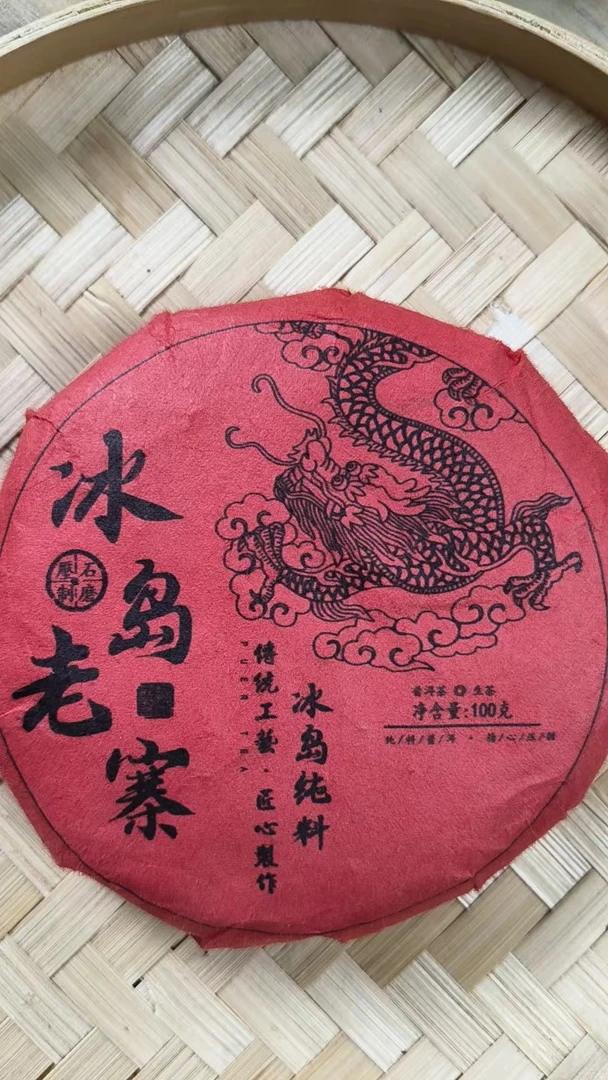 冰岛老寨
石磨壓制
傳統工藝·匠心製作
PUER TEA
冰岛纯料
普洱茶 生茶
净含量:100克
纯/料/普/洱 · 精/心/压/制